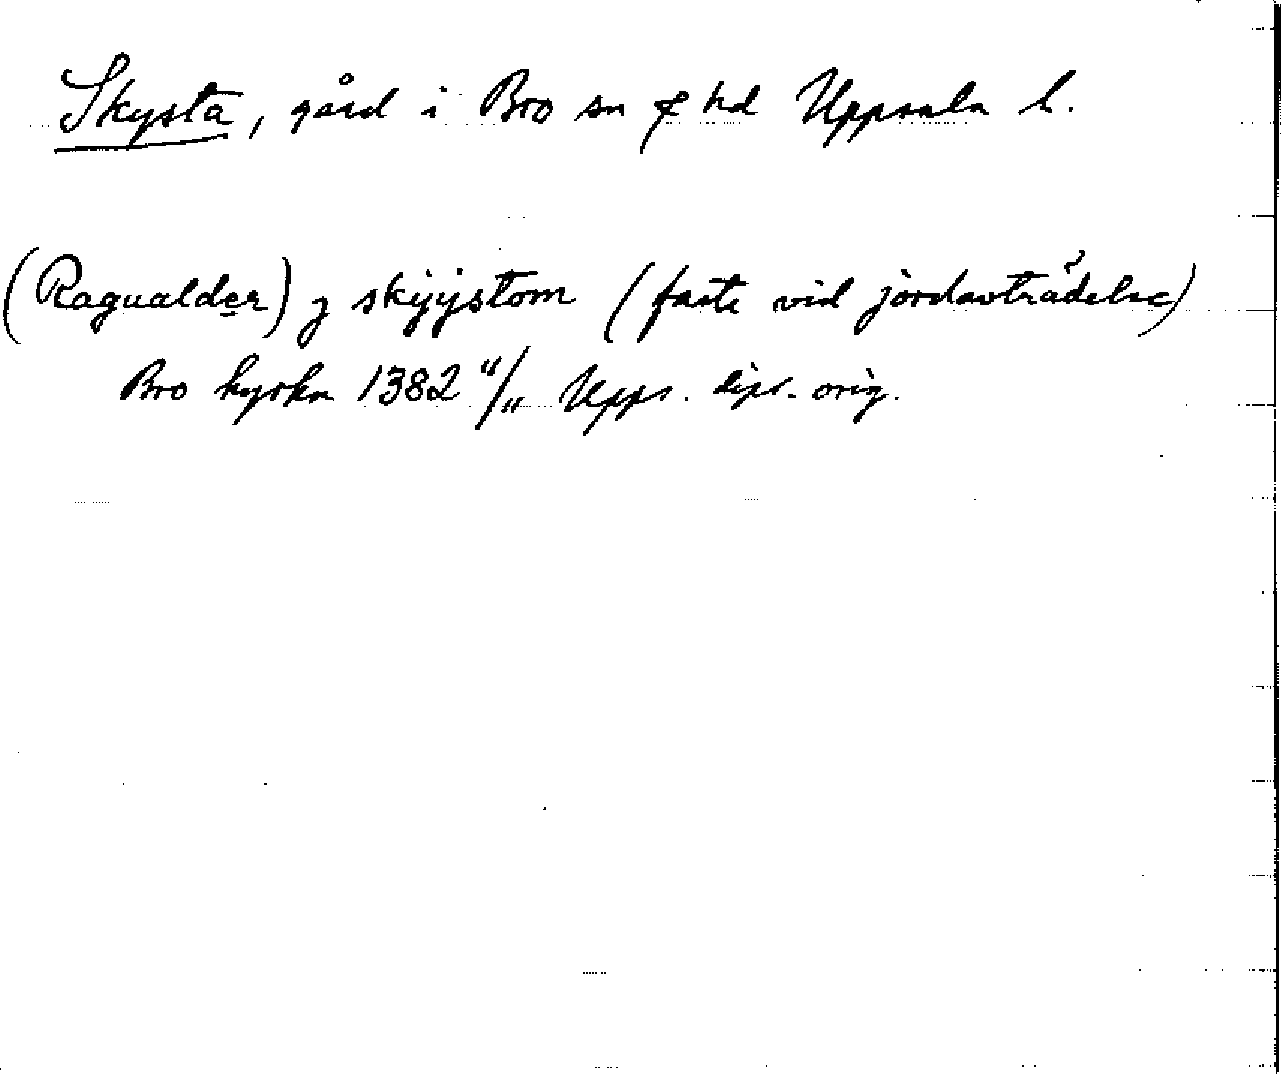 Skysta, gård i Bro sn & hd Uppsala l.
(Ragualder) j skijijstom (faste vid jordavträdelse)
Bro kyrka 1382 11/11 Upps. dipl. orig.